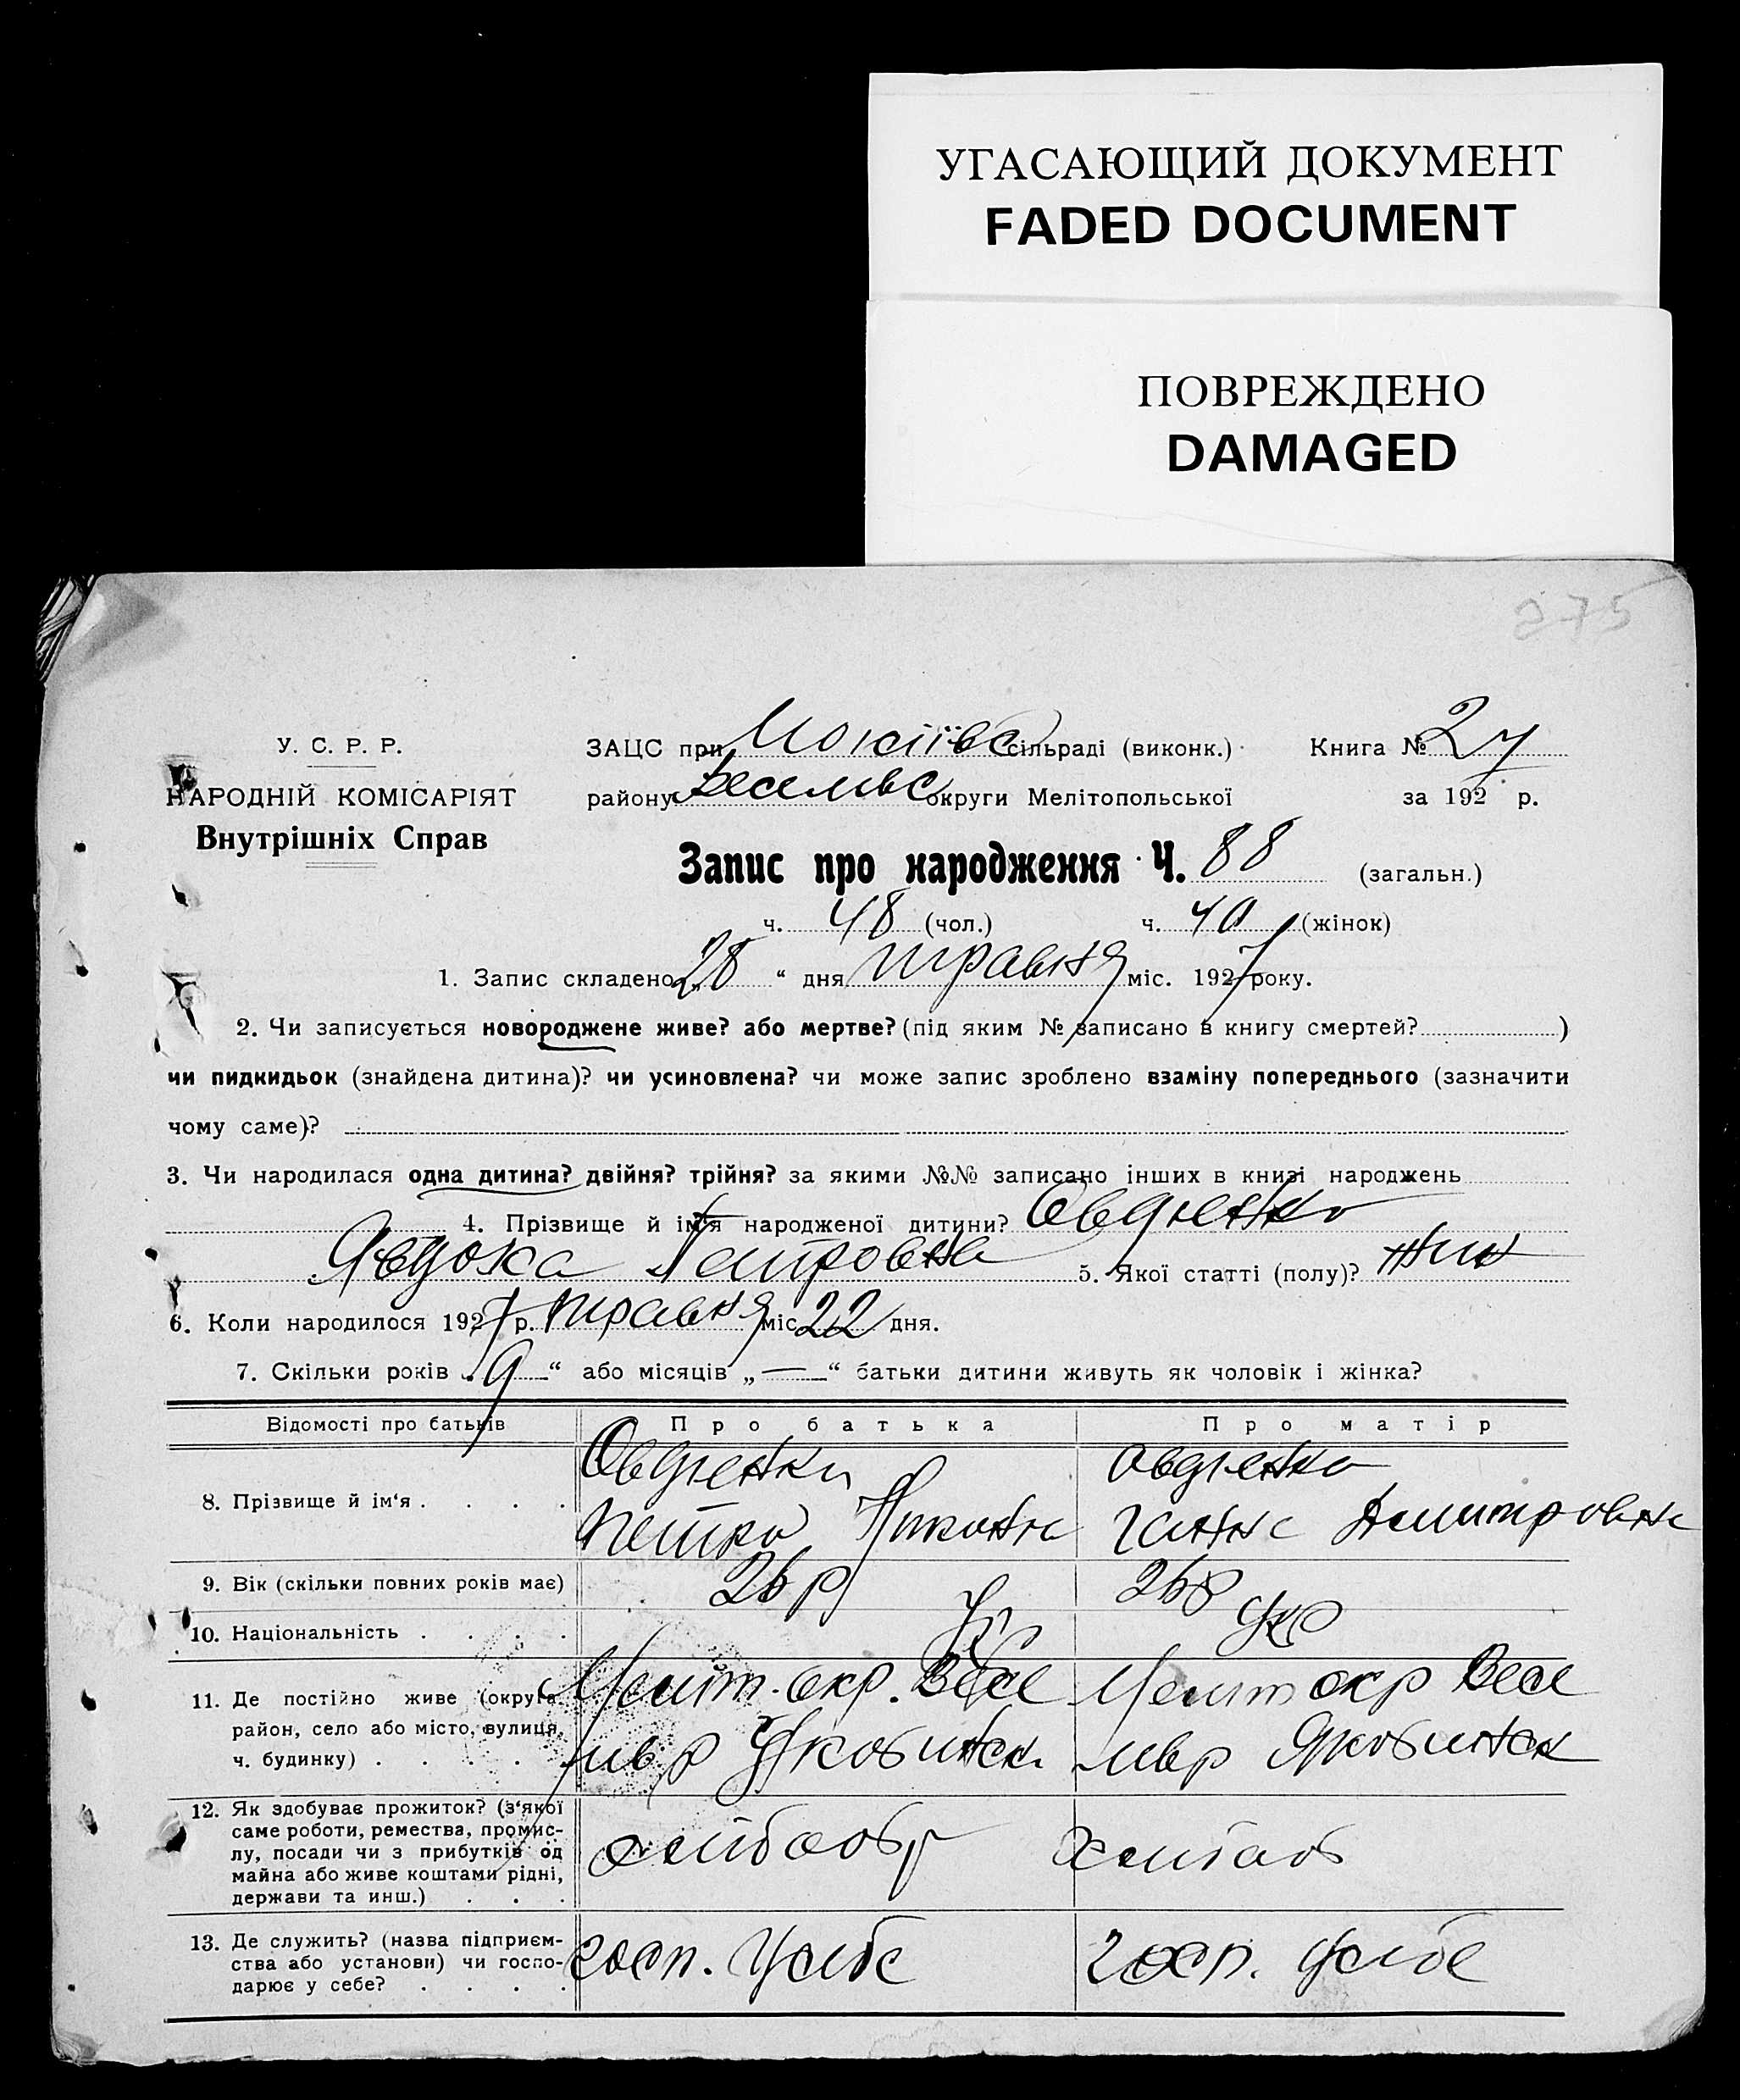 УГАСАЮЩИЙ ДОКУМЕНТ
FADED DOCUMENT
ПОВРЕЖДЕНО
DAMAGED
275
У. С. Р. Р.
НАРОДНІЙ КОМІСАРІЯТ
Внутрішніх Справ
ЗАЦС при сільраді (виконк.) Книга № 2
району Веселівс округи Мелітопольської за 192 р.
Запис про народження Ч. 88 (загальн.)
ч. 48 (чол.) ч. 40 (жінок)
1. Запис складено „28“ дня травня міс. 1927 року.
2. Чи записується новороджене живе? або мертве? (під яким № записано в книгу смертей? )
чи пидкидьок (знайдена дитина)? чи усиновлена? чи може запис зроблено взаміну попереднього (зазначити
чому саме)?
3. Чи народилася одна дитина? двійня? трійня? за якими №№ записано інших в книзі народжень
4. Прізвище й ім'я народженої дитини? Овдієнко
Явдоха Петровна 5. Якої статті (полу)? жін
6. Коли народилося 1927 р. травня міс. 22 дня.
7. Скільки років „9“ або місяців „—“ батьки дитини живуть як чоловік і жінка?
Відомості про батьків Про батька Про матір
8. Прізвище й ім'я . . . . Овдієнко Овдієнко
Петро Ганна Димитровна
9. Вік (скільки повних років має) 26 р 26 р
10. Національність . . . . Укр Укр
11. Де постійно живе (округа, Меліт. окр. Весе Меліт окр Весе
район, село або місто, вулиця, лів р лів р
ч. будинку) . . . .
12. Як здобуває прожиток? (з'якої
саме роботи, ремества, промис-
лу, посади чи з прибутків од хлібороб
майна або живе коштами рідні,
держави та инш.) . . .
13. Де служить? (назва підприєм-
ства або установи) чи госпо- госп. у себе госп. у себе
дарює у себе? . . . .